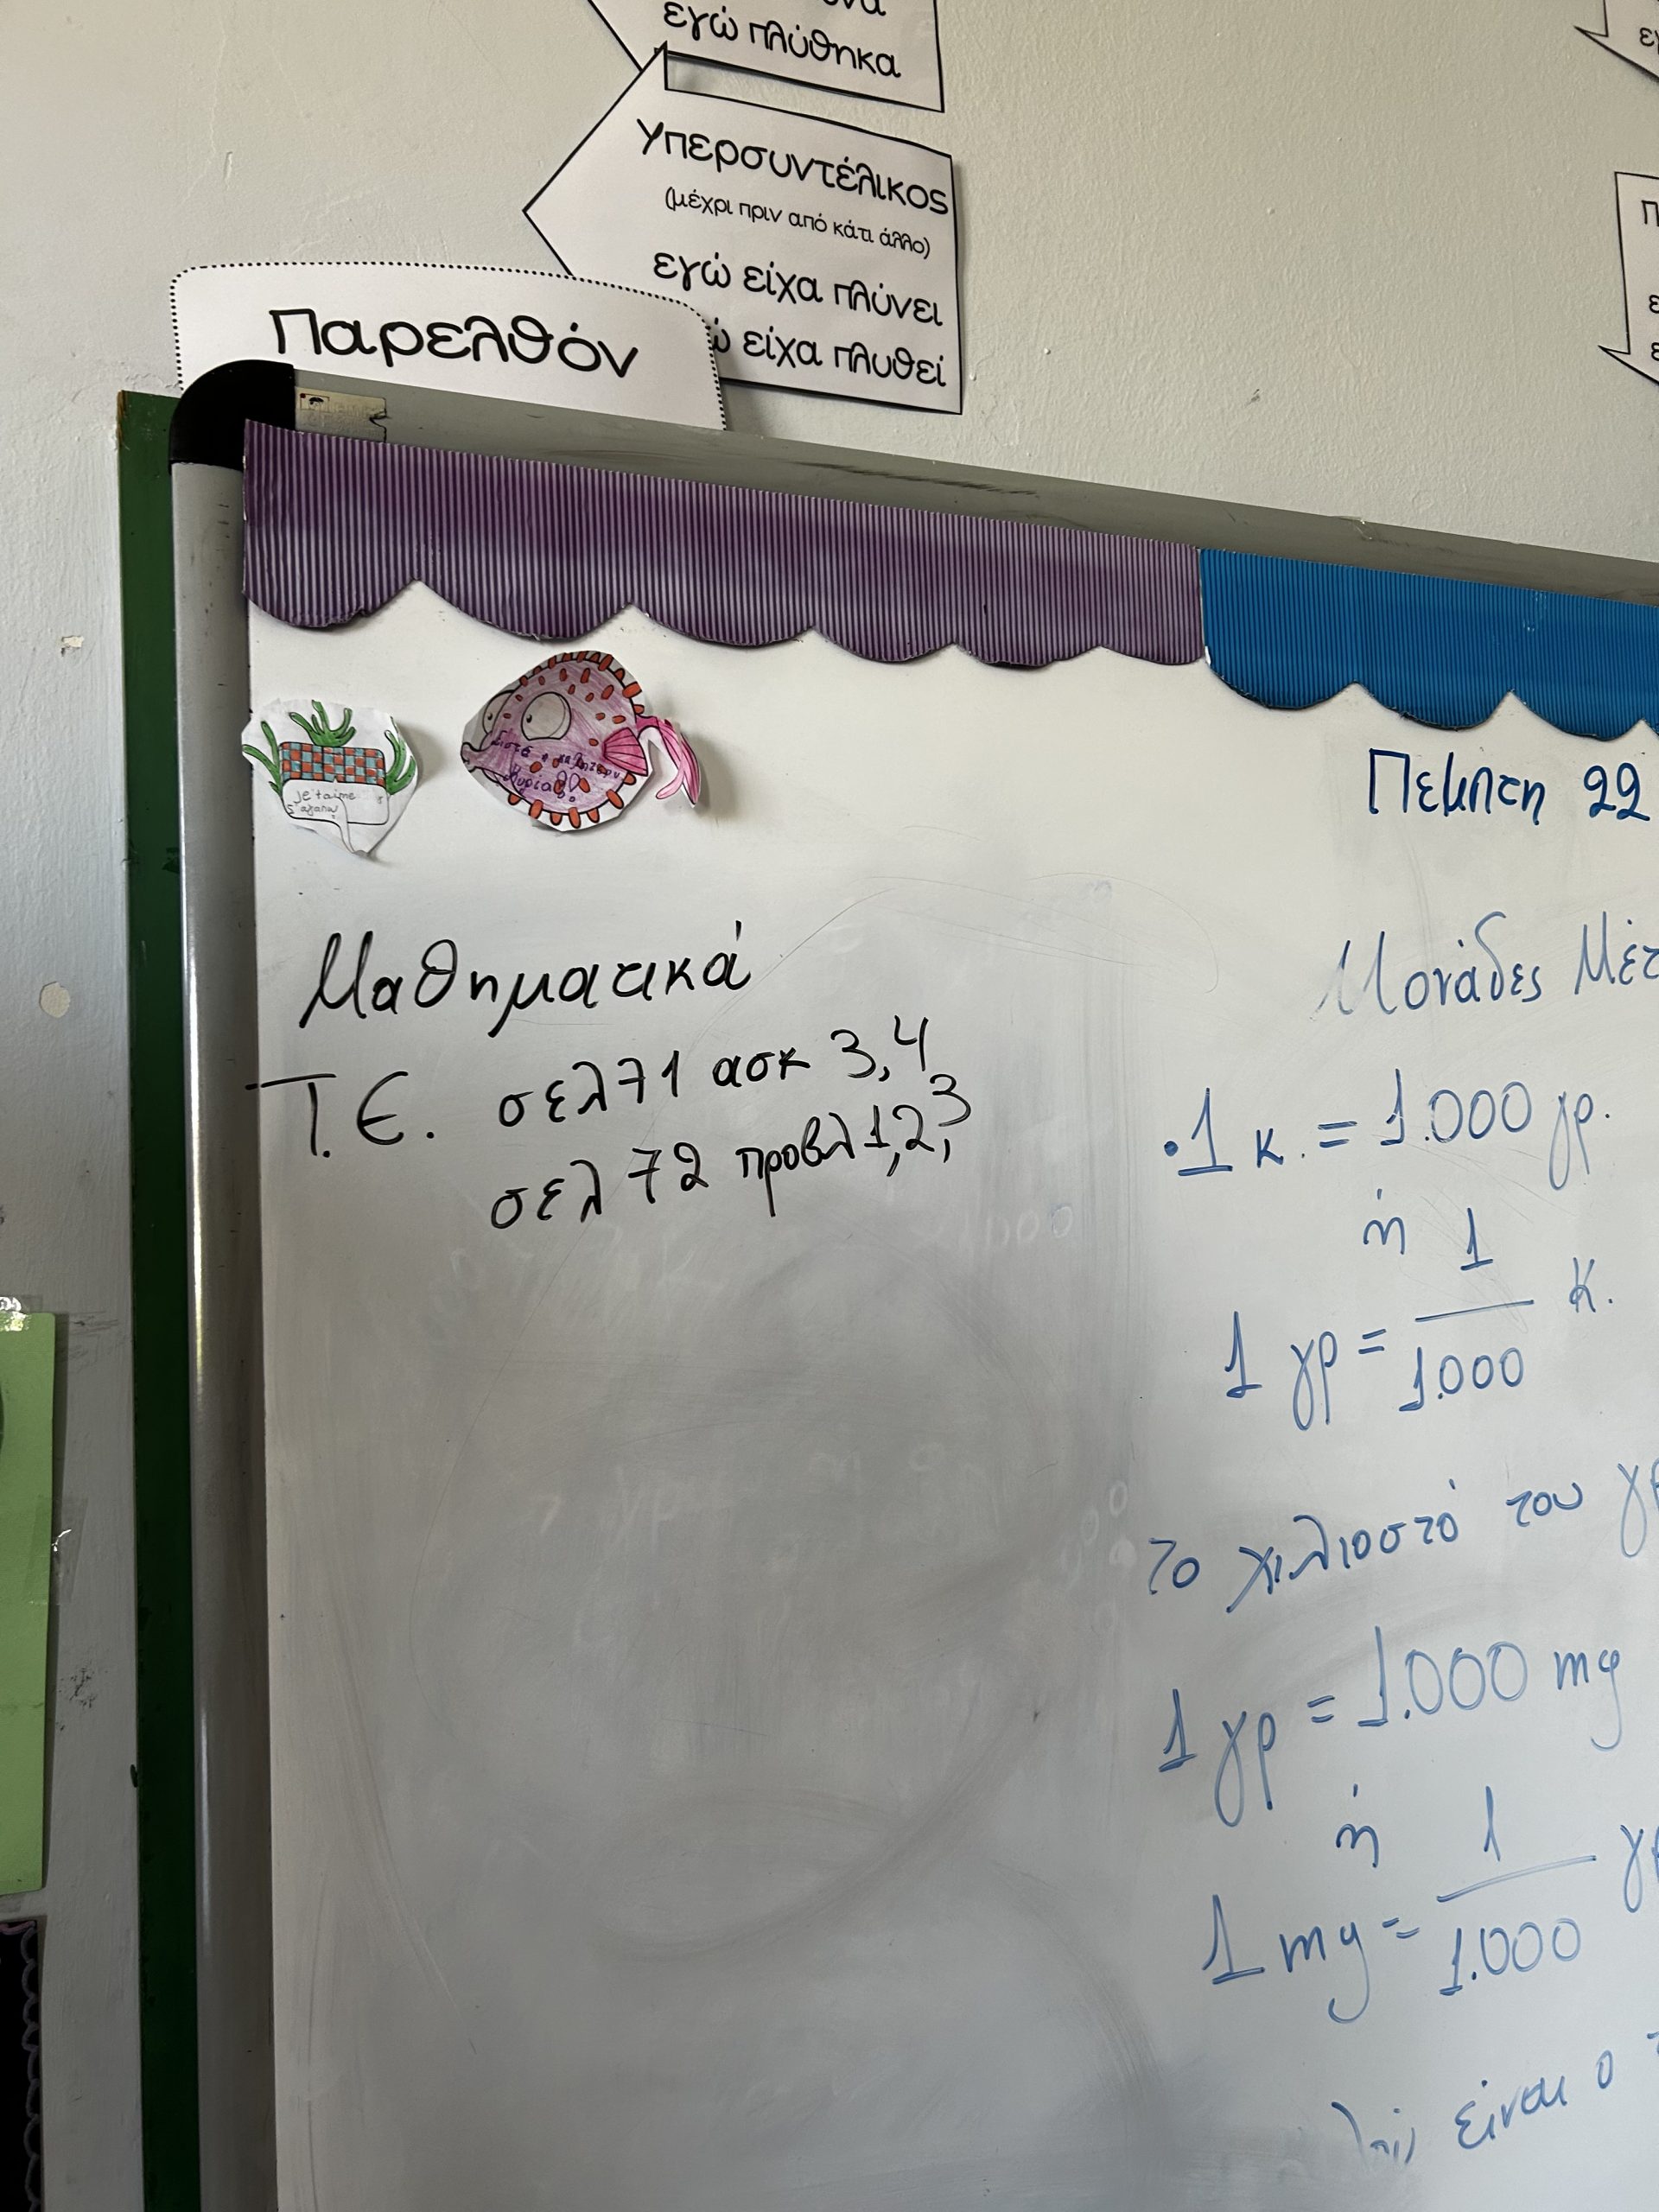 εγώ πλύθηκα
Υπερσυντέλικος
(μέχρι πριν από κάτι άλλο)
εγώ είχα πλύνει
είχα πλυθεί
Παρελθόν
je t'aime
s'agapw
Είστε η καλύτερη
κυρία!
Πέμπτη 22
Μαθηματικά
Τ.Ε. σελ 71 ασκ 3,4
σελ 72 προβλ 1,2,3
Μονάδες
• 1 κ. = 1.000 γρ.
ή
1 γρ = 1/1.000 κ.
το χιλιοστό του
1 γρ = 1.000 mg
ή
1 mg = 1/1.000
είναι ο